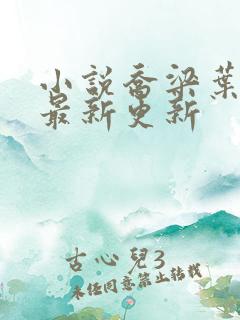 小说乔梁葉
最新更新
古心兒3
未经同意禁止转载